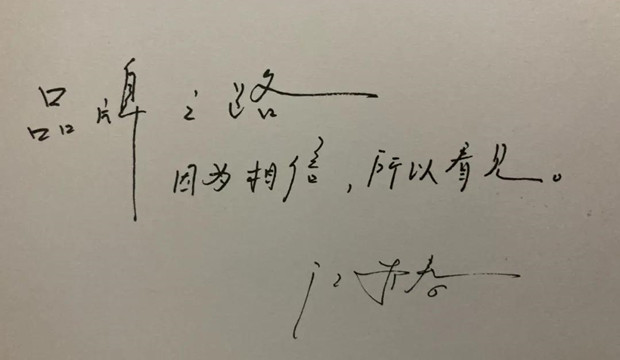 品牌之路
因为相信，所以看见。